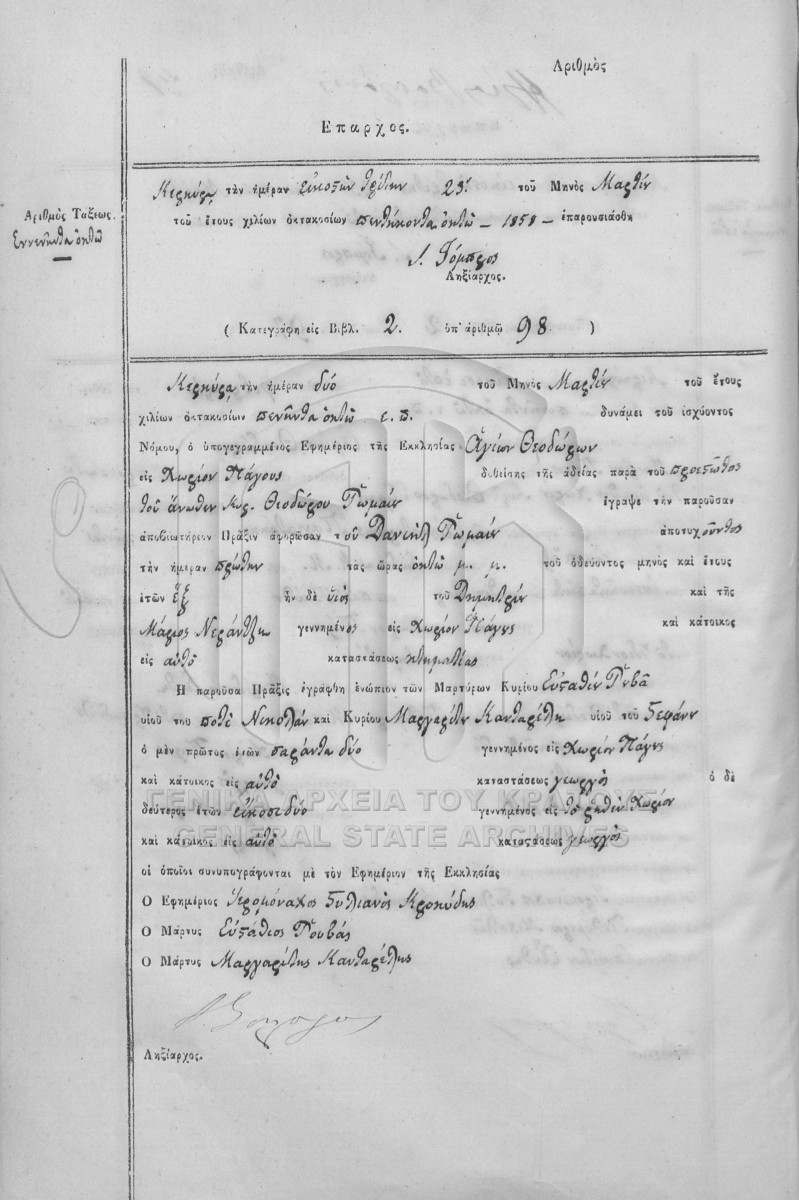 Αριθμὸς
Επαρχος.
Αριθμὸς Τάξεως.
Εννενῆντα ὀκτῶ
Κερκύρᾳ τὴν ἡμέραν εἰκοστὴν τρίτην 23. τοῦ Μηνὸς Μαρτίου
τοῦ ἔτους χιλίων ὀκτακοσίων πεντήκοντα ὀκτῶ - 1858 - ἐπαρουσιάσθη
Ληξίαρχος.
( Κατεγράφη εἰς Βιβλ. 2. ὑπ' ἀριθμῷ 98. )
Κερκύρᾳ τὴν ἡμέραν δύο τοῦ Μηνὸς Μαρτίου τοῦ ἔτους
χιλίων ὀκτακοσίων πενῆντα ὀκτὼ ε. π. δυνάμει τοῦ ἰσχύοντος
Νόμου, ὁ ὑπογεγραμμένος Εφημέριος τῆς Εκκλησίας Ἁγίων Θεοδώρων
εἰς Χωρίον Πάγους δυθείσης τῆς ἀδείας παρὰ τοῦ προεστῶτος
τοῦ ἄνωθεν Κυρ. Θεοδώρου Ρωμαίου ἔγραψε τὴν παροῦσαν
ἀποβιωτήριον Πρᾶξιν ἀφορῶσαν τοῦ Δανιὴλ Ρωμαίου ἀποτυχοῦντος
τὴν ἡμέραν πρώτην τὰς ὥρας ὀκτὼ μ. μ. τοῦ ὁδεύοντος μηνὸς καὶ ἔτους
ἐτῶν ἓξ ἦν δὲ υἱὸς τοῦ Δημητρίου καὶ τῆς
Μάριος Νεράντζη γεννημένος εἰς Χωρίον Πάγους καὶ κάτοικος
εἰς αὐτὸ καταστάσεως κτηματίας
Η παροῦσα Πρᾶξις ἐγράφθη ἐνώπιον τῶν Μαρτύρων Κυρίου Εὐσταθίου Ρουβᾶ
υἱοῦ τοῦ ποτὲ Νικολάου καὶ Κυρίου Μαργαρίτη Κανταρέλη υἱοῦ τοῦ Στεφάνου
ὁ μὲν πρῶτος ἐτῶν σαράντα δύο γεννημένος εἰς Χωρίον Πάγους
καὶ κάτοικος εἰς αὐτὸ καταστάσεως γεωργὸς ὁ δὲ
δεύτερος ἐτῶν εἴκοσι δύο γεννημένος εἰς τὸ ρηθὲν Χωρίον
καὶ κάτοικος εἰς αὐτὸ καταστάσεως γεωργὸς
οἱ ὁποῖοι συνυπογράφονται μὲ τὸν Εφημέριον τῆς Εκκλησίας
Ο Εφημέριος Ἱερομόναχος Στυλιανὸς Κροκύδης
Ο Μάρτυς Εὐστάθιος Ρουβᾶς
Ο Μάρτυς Μαργαρίτης Κανταρέλης
Ληξίαρχος.
ΓΕΝΙΚΑ ΑΡΧΕΙΑ ΤΟΥ ΚΡΑΤΟΥΣ
GENERAL STATE ARCHIVES